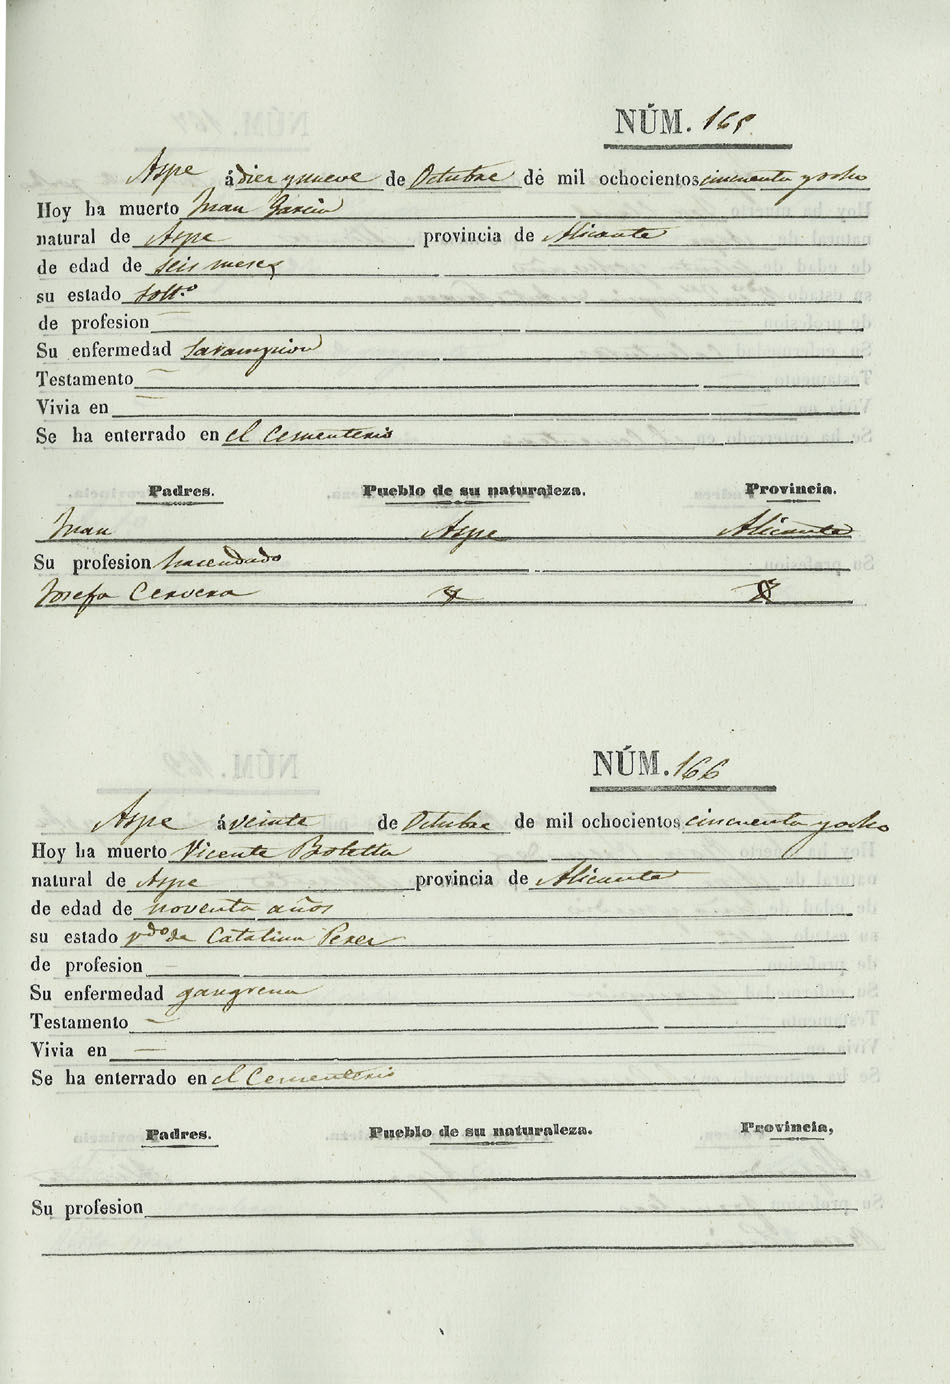 NÚM. 165
Aspe á diez y nueve de Octubre de mil ochocientos cincuenta y ocho
Hoy ha muerto Juan Garcia
natural de Aspe provincia de Alicante
de edad de seis meses
su estado solt.o
de profesion
Su enfermedad sarampion
Testamento
Vivia en
Se ha enterrado en el Cementerio
Padres. Pueblo de su naturaleza. Provincia.
Juan Aspe Alicante
Su profesion hacendado
Josefa Cervera
NÚM. 166
Aspe á veinte de Octubre de mil ochocientos cincuenta y ocho
Hoy ha muerto Vicente Botella
natural de Aspe provincia de Alicante
de edad de noventa años
su estado vdo de Catalina Perez
de profesion
Su enfermedad gangrena
Testamento
Vivia en
Se ha enterrado en el Cementerio
Padres. Pueblo de su naturaleza. Provincia,
Su profesion